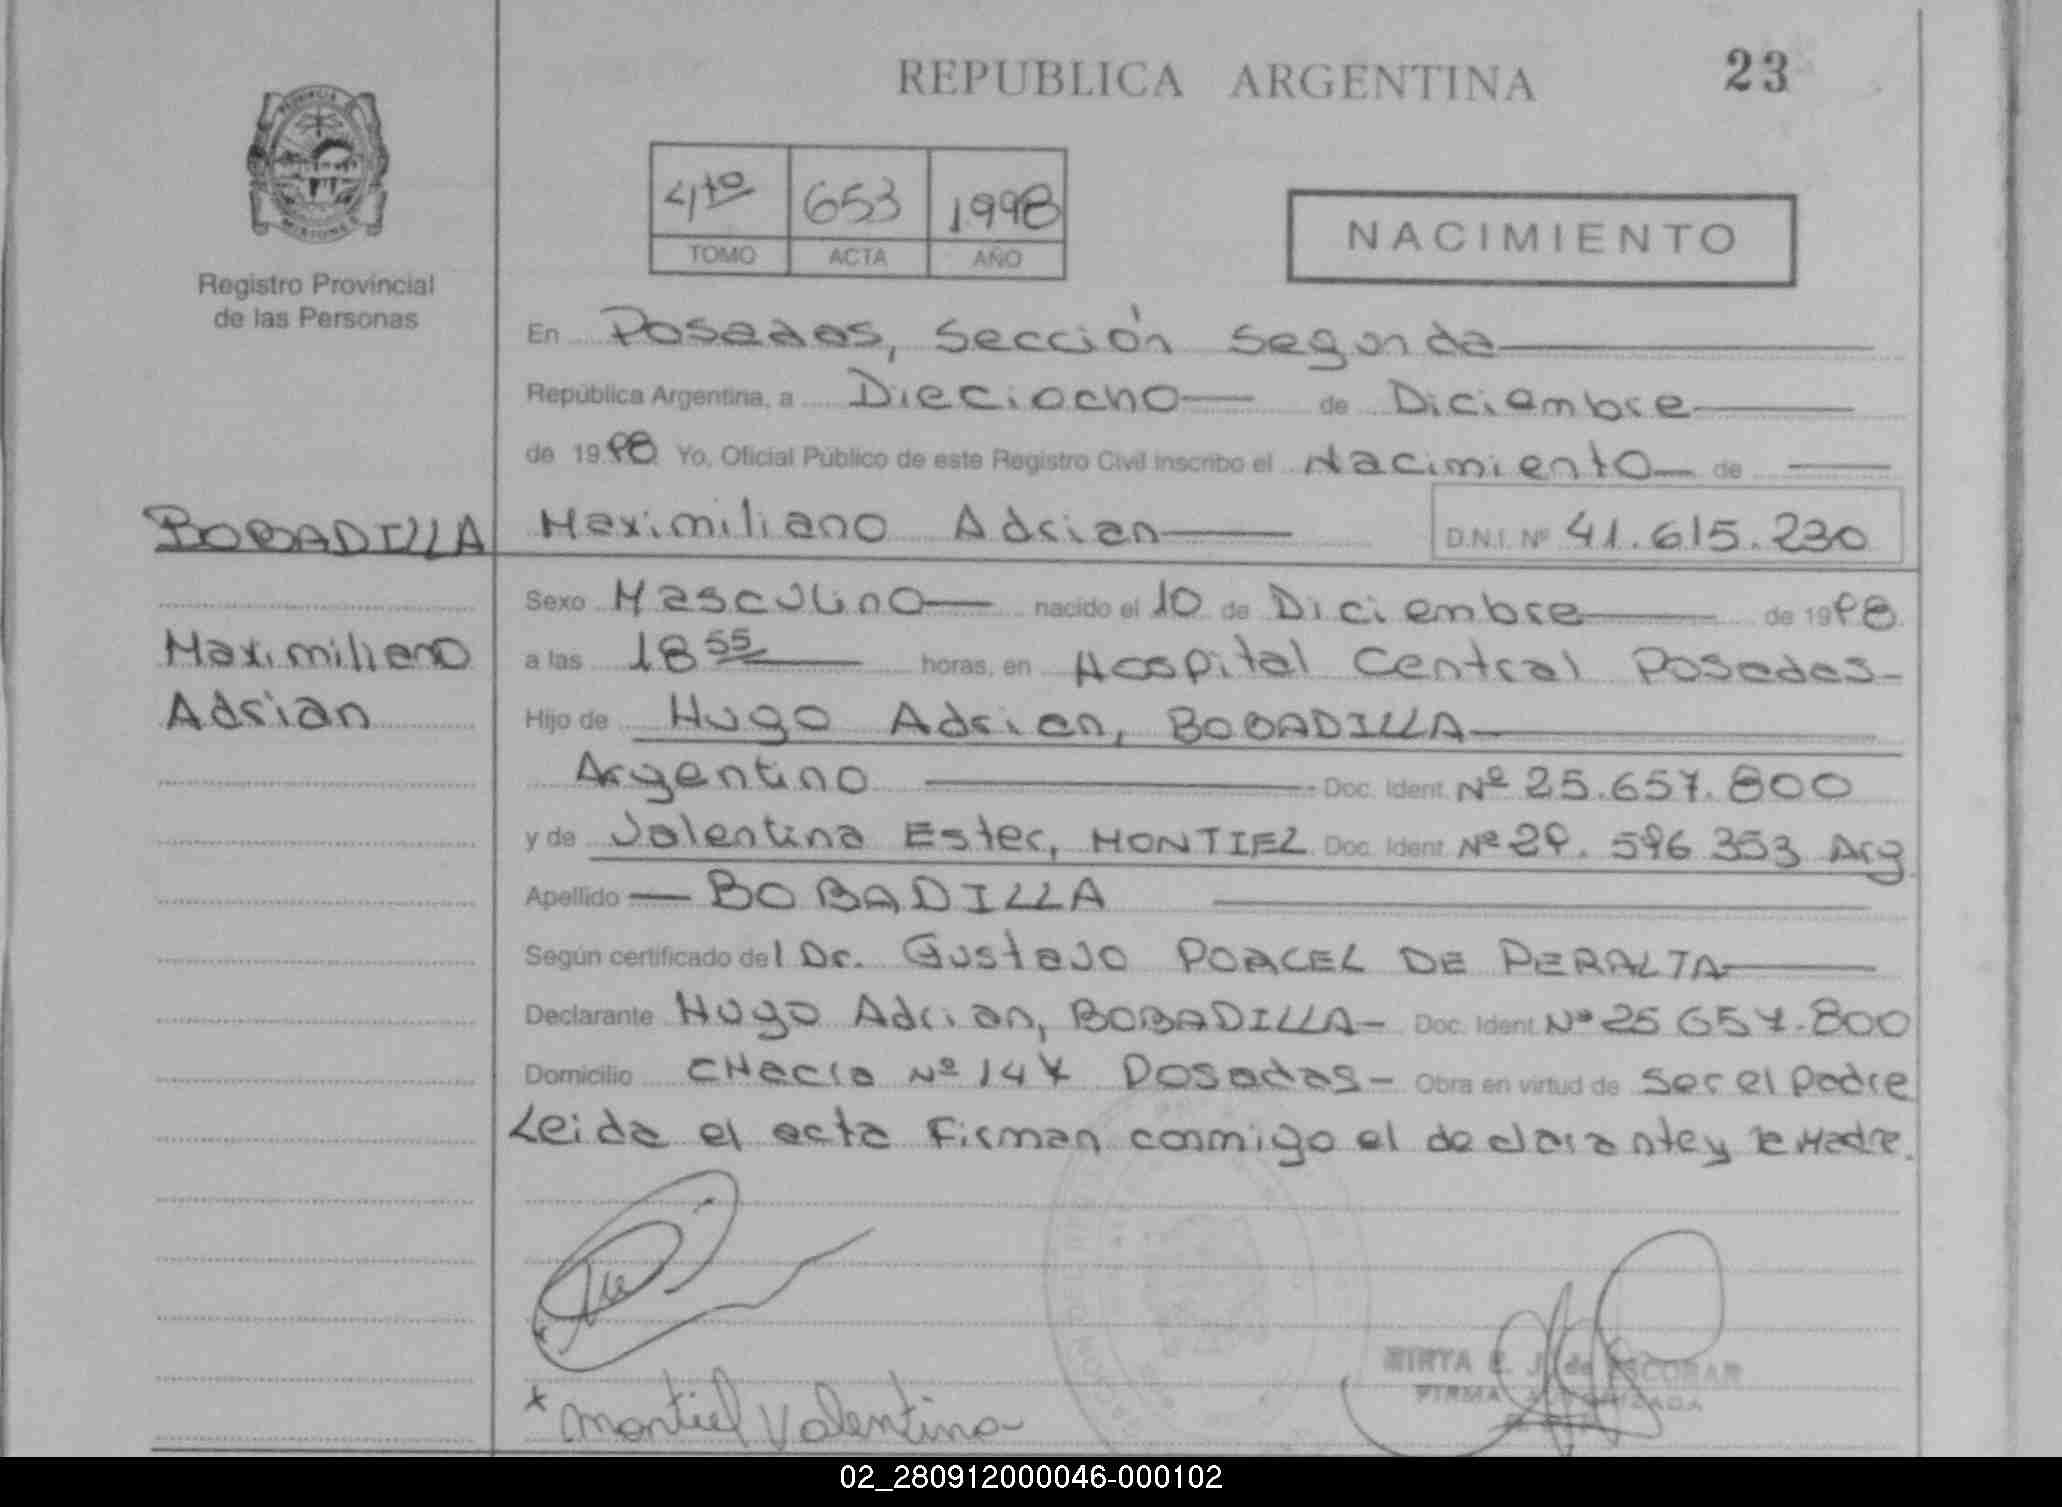 REPUBLICA ARGENTINA
23
4to 653 1998
TOMO ACTA AÑO
NACIMIENTO
Registro Provincial
de las Personas
En Posadas, Sección Segunda
República Argentina, a Dieciocho de Diciembre
de 19 98 Yo, Oficial Público de este Registro Civil inscribo el Nacimiento de
BOBADILLA
Maximiliano Adrian
D.N.I. Nº 41.615.230
Maximiliano
Adrian
Sexo Masculino nacido el 10 de Diciembre de 19 98.
a las 18 55 horas, en Hospital Central Posadas-
Hijo de Hugo Adrian, BOBADILLA
Argentino Doc. Ident. Nº 25.657.800
y de Valentina Ester, MONTIEL Doc. Ident. Nº 29.596.353 Arg.
Apellido BOBADILLA
Según certificado del Dr. Gustavo PORCEL DE PERALTA
Declarante Hugo Adrian, BOBADILLA- Doc. Ident. Nº 25 657.800
Domicilio CHacra Nº 147 Posadas- Obra en virtud de ser el Padre
Leida el acta Firman conmigo el declarante y la Madre.
Montiel Valentina
MIRTA E. J. de ESCOBAR
FIRMA AUTORIZADA
02_280912000046-000102